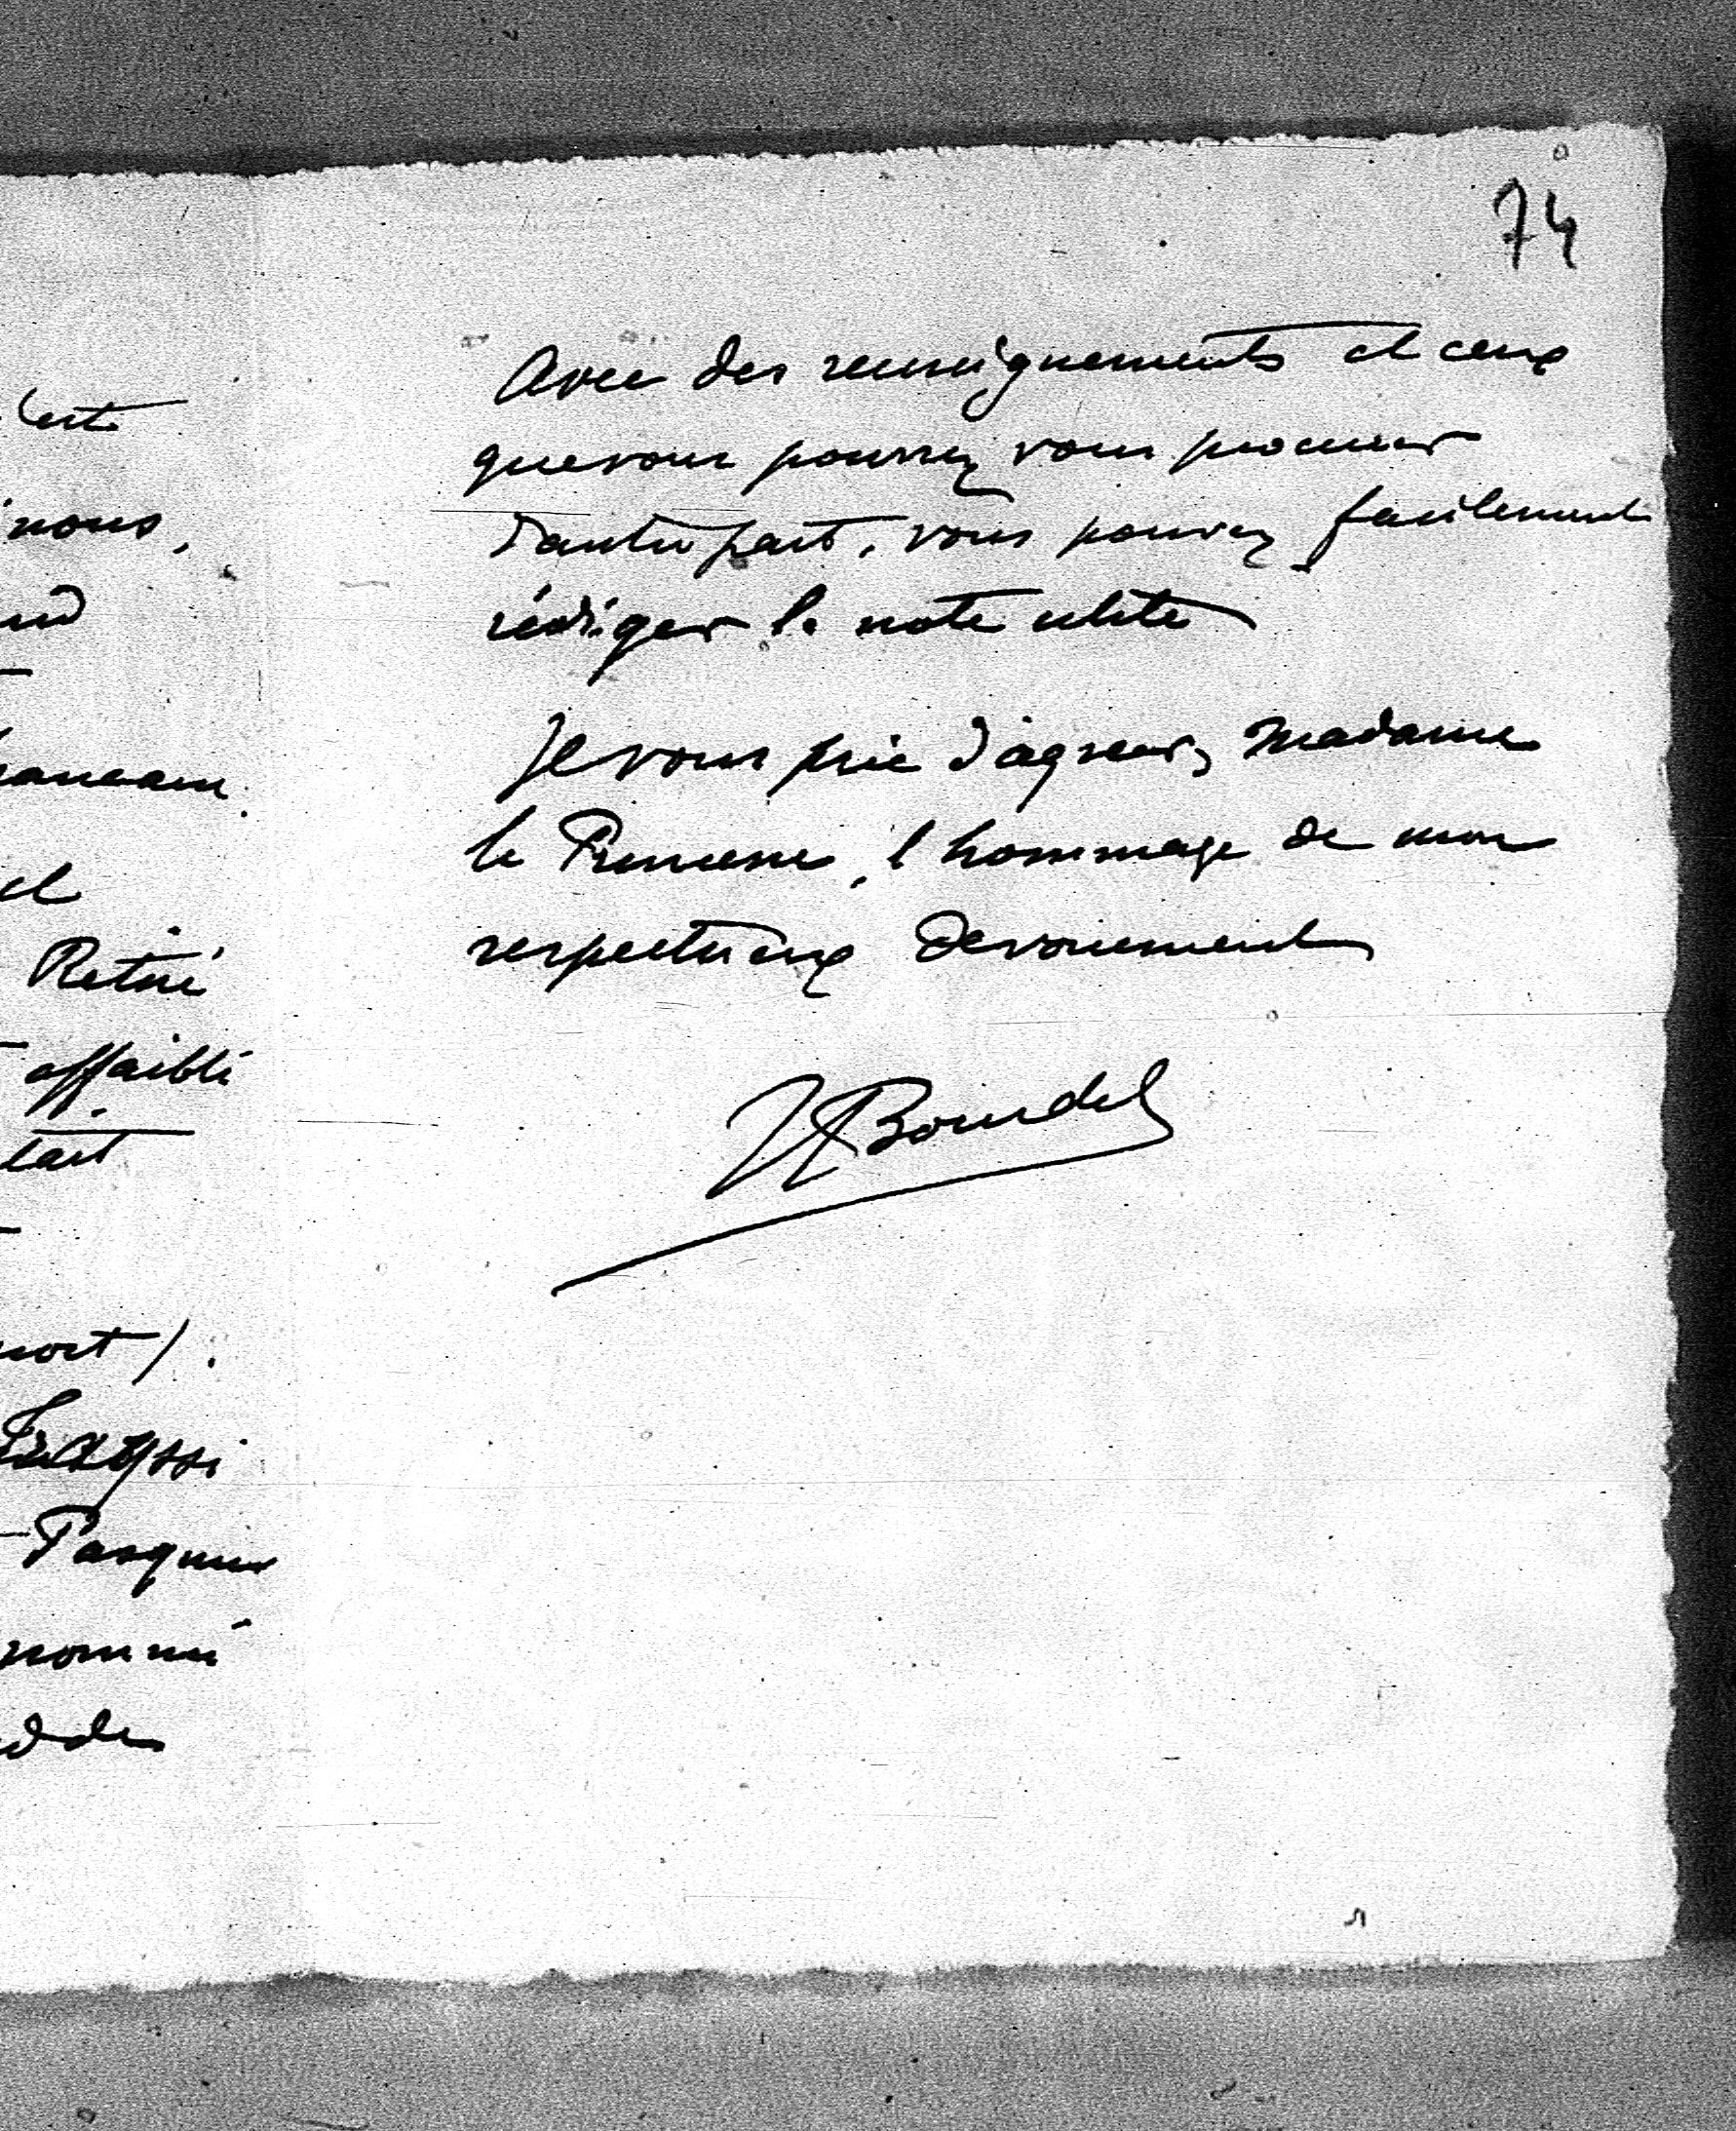 74
Avec des renseignements et ceux
que vous pourrez vous procurer
d'autre part, vous pouvez facilement
rédiger la note utile
Je vous prie d'agréer, Madame
la Princesse, l'hommage de mon
respectueux dévouement
Bourdel
C'est
nous,
et
Retiré
affaibli
tait
mort).
Pasquier
nommé